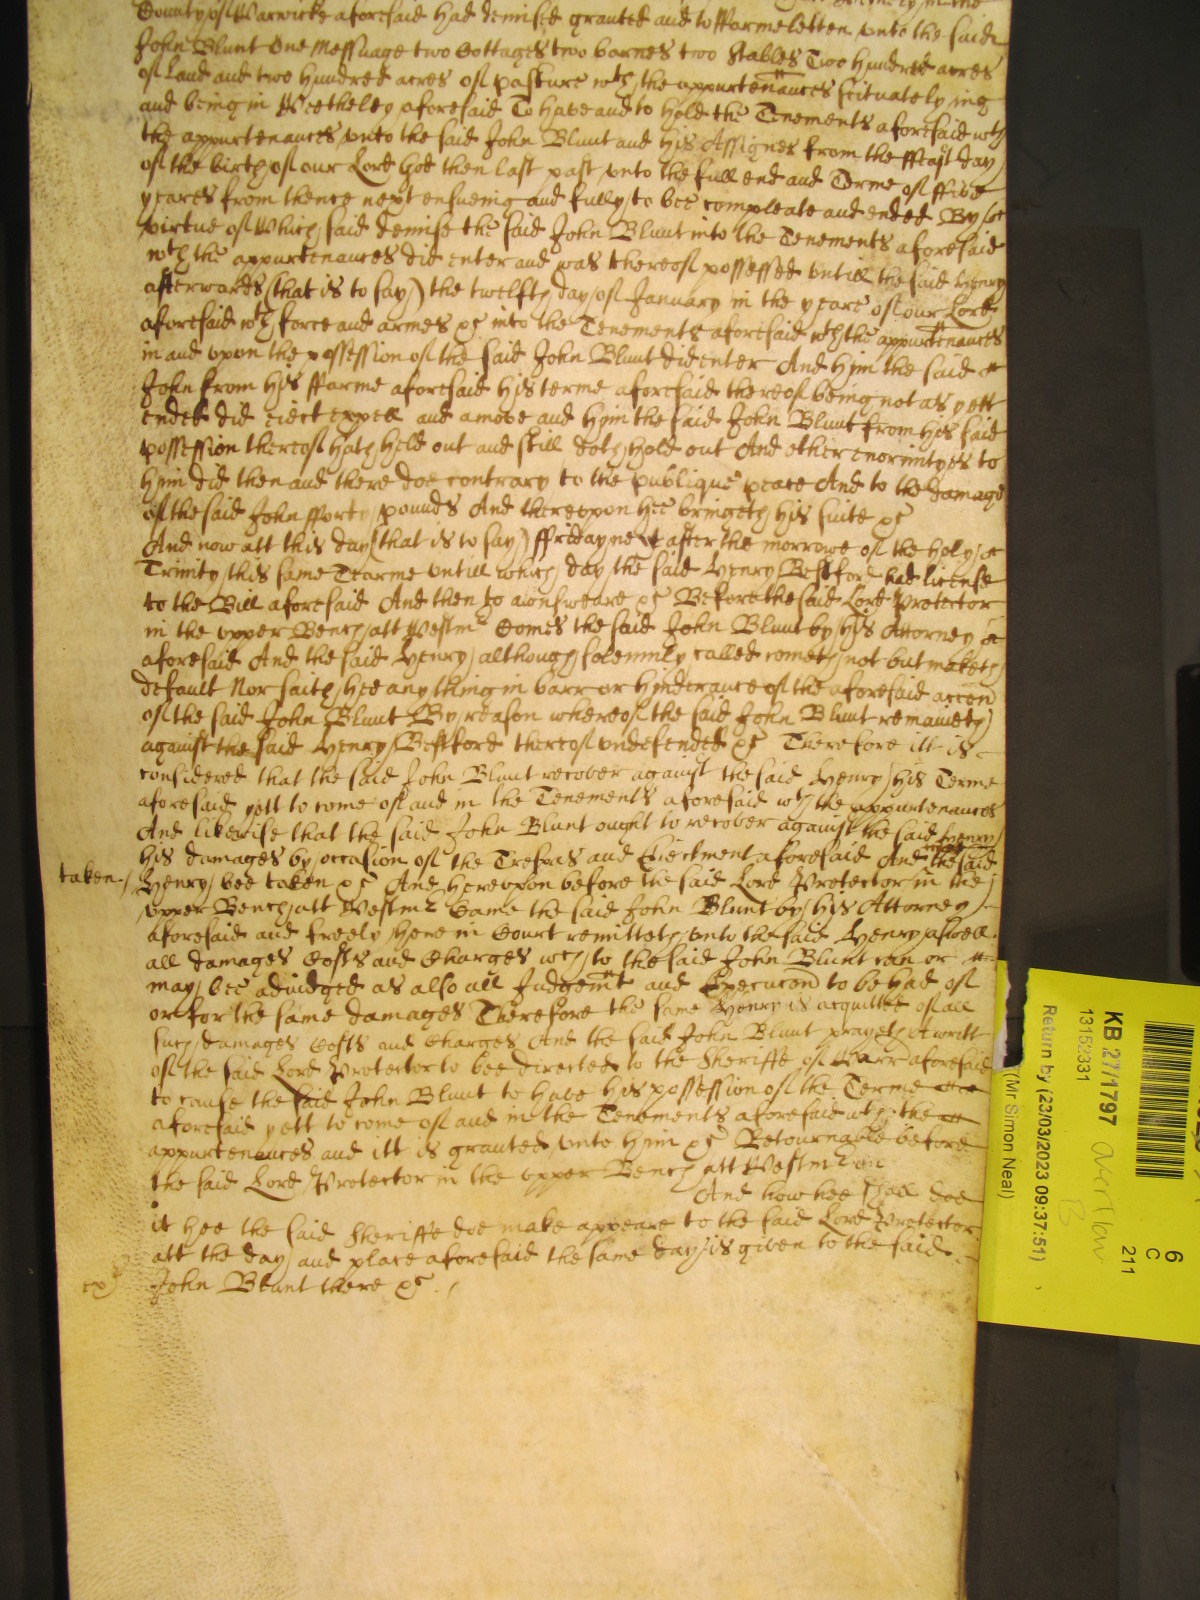 County of Warwicke aforesaid had demised granted and to ffarme letten unto the said
John Blunt One Messuage two Cottages two barnes two Stables Two hundred acres
of Land and two hundred acres of pasture wth the appurtenances scituate lying
and being in Weetheley aforesaid To have and to hold the Tenements aforesaid wth
the appurtenances unto the said John Blunt and his Assignes from the ffeast day
of the birth of our Lord God then last past unto the full end and Terme of ffive
yeares from thence next ensueing and fully to bee compleate and ended By
virtue of Which said demise the said John Blunt into the Tenements aforesaid
wth the appurtenances did enter and was thereof possessed untill the said Henry
afterwards (that is to say) the twelfth day of January in the yeare of our Lord
aforesaid wth force and armes &c into the Tenements aforesaid wth the appurtenances
in and upon the possession of the said John Blunt did enter And him the said
John from his ffarme aforesaid his terme aforesaid thereof being not as yett
ended did eiect expell and amove and him the said John Blunt from his said
possession thereof hath held out and still doth hold out And other enormityes to
him did then and there doe contrary to the publique peace And to the damage
of the said John fforty pounds And thereupon hee bringeth his suite &c
And now att this day (that is to say) ffriday next after the morrowe of the holy
Trinity this same Tearme untill which day the said Henry Bestford had license
to the Bill aforesaid And then to aunsweare &c Before the said Lord Protector
in the upper Bench att Westmr Comes the said John Blunt by his Attorney
aforesaid And the said Henry although solemnily called cometh not but maketh
default Nor saith hee any thing in barr or hinderance of the aforesaid accon
of the said John Blunt By reason whereof the said John Blunt remaineth
against the said Henry Bestford thereof undefended &c Therefore itt is
considered that the said John Blunt recover against the said Henry his Terme
aforesaid yett to come of and in the Tenements aforesaid wth the appurtenances
And likewise that the said John Blunt ought to recover against the said Henry
his damages by occasion of the Trespas and Eiectment aforesaid And the said
taken. Henry bee taken &c And hereupon before the said Lord Protector in the
upper Bench att Westmr Came the said John Blunt by his Attorney
aforesaid and freely here in Court remitteth unto the said Henry aswell
all damages Costs and Charges wch to the said John Blunt can or
may bee adiudged as also all Judgemt and Execucon to be had of
or for the same damages Therefore the same Henry is acquitted of all
such damages Costs and Charges And the said John Blunt prayeth A writt
of the said Lord Protector to bee directed to the Sheriffe of Warr aforesaid
to cause the said John Blunt to have his possession of the Terme
aforesaid yett to come of and in the Tenements aforesaid wth the
appurtenances and itt is granted unto him &c Retournable before
the said Lord Protector in the upper Bench att Westmr on
And how hee shall doe
it hee the said Sheriffe doe make appeare to the said Lord Protector
att the day and place aforesaid the same day is given to the said
John Blunt there &c
KB 27/1797
13152331
Return by (23/03/2023 09:37:51)
(Mr Simon Neal)
6
C
211